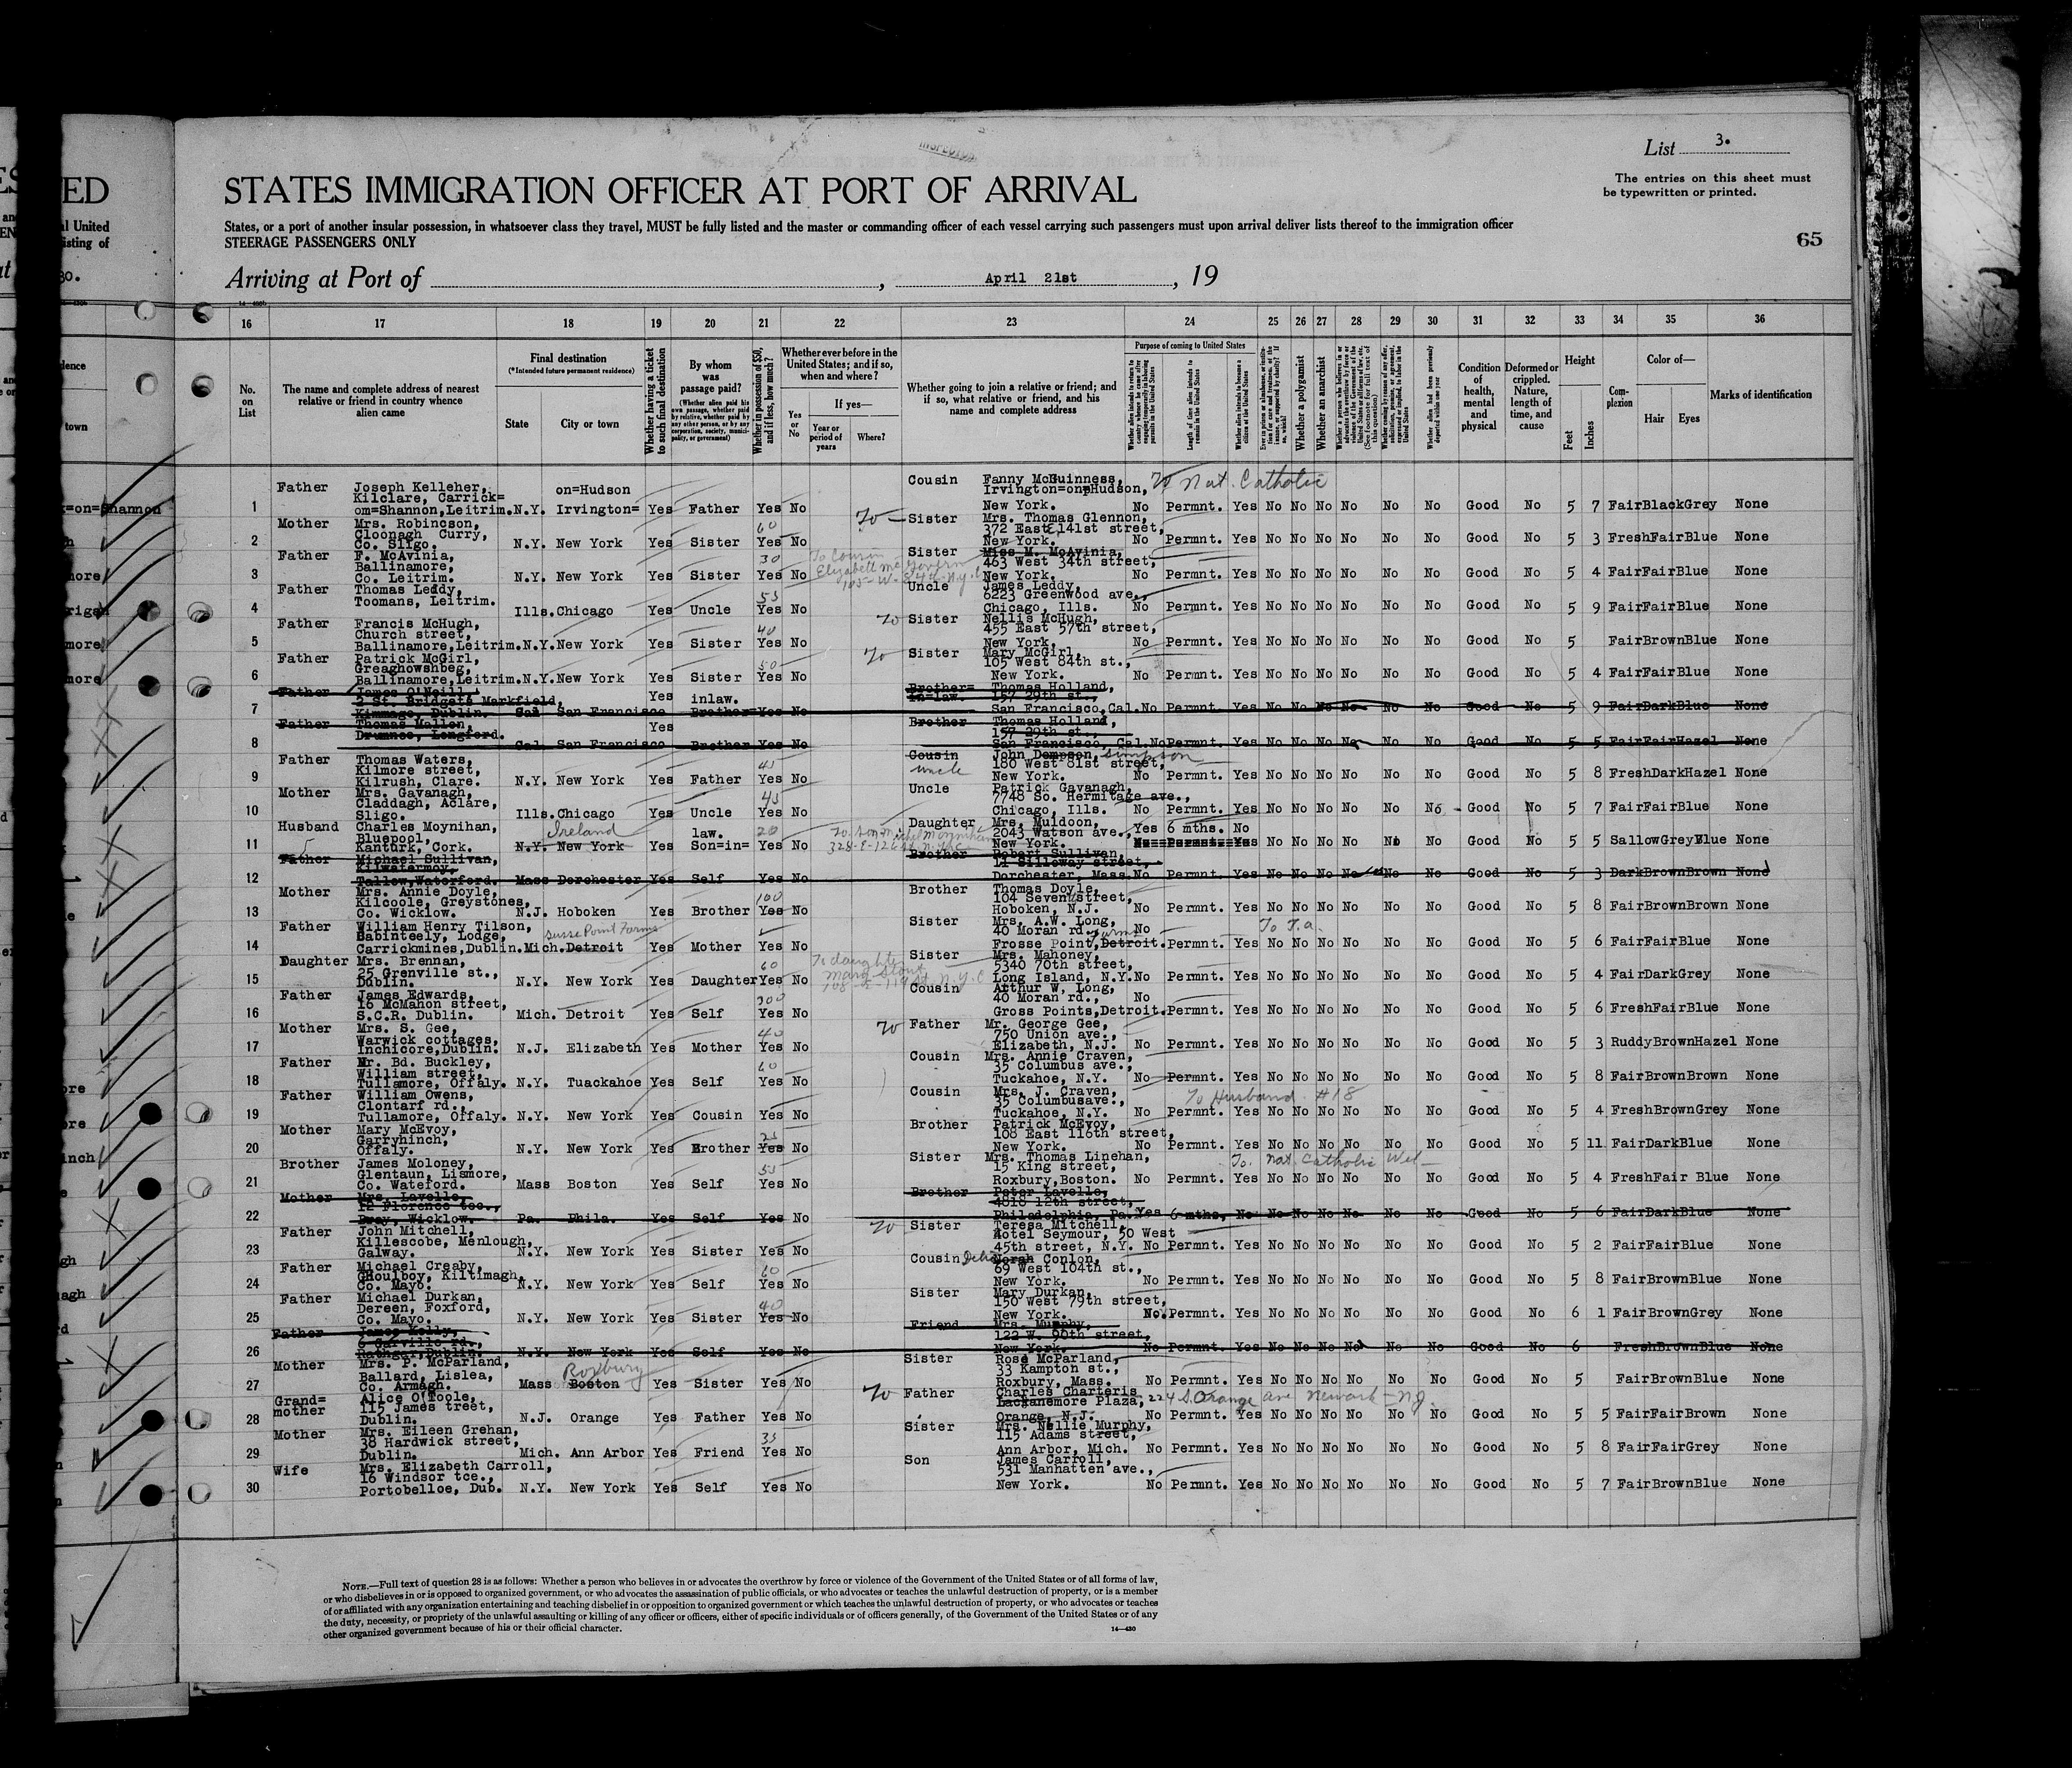 List 3.
The entries on this sheet must
be typewritten or printed.
STATES IMMIGRATION OFFICER AT PORT OF ARRIVAL
States, or a port of another insular possession, in whatsoever class they travel, MUST be fully listed and the master or commanding officer of each vessel carrying such passengers must upon arrival deliver lists thereof to the immigration officer
STEERAGE PASSENGERS ONLY
65
Arriving at Port of , April 21st , 19
16 17 18 19 20 21 22 23 24 25 26 27 28 29 30 31 32 33 34 35 36
No. on List
The name and complete address of nearest relative or friend in country whence alien came
Final destination
(*Intended future permanent residence)
State City or town
Whether having a ticket to such final destination
By whom was passage paid?
Whether in possession of $50, and if less, how much?
Whether ever before in the United States; and if so, when and where?
Yes or No
If yes—
Year or period of years
Where?
Whether going to join a relative or friend; and if so, what relative or friend, and his name and complete address
Purpose of coming to United States
Whether a polygamist
Whether an anarchist
Condition of health, mental and physical
Deformed or crippled. Nature, length of time, and cause
Height
Feet Inches
Complexion
Color of—
Hair Eyes
Marks of identification
1 Father Joseph Kelleher, Kilclare, Carrick=om=Shannon,Leitrim. N.Y. Irvington=on=Hudson Yes Father Yes No Cousin Fanny McGuinness, Irvington=on=Hudson, New York. No Permnt. Yes No No No No No No Good No 5 7 Fair Black Grey None
To Nat. Catholic
2 Mother Mrs. Robinson, Cloonagh Curry, Co. Sligo. N.Y. New York Yes Sister 60 Yes No Sister Mrs. Thomas Glennon, 372 East 141st street, New York. No Permnt. Yes No No No No No No Good No 5 3 Fresh Fair Blue None
3 Father F. McAvinia, Ballinamore, Co. Leitrim. N.Y. New York Yes Sister 30 Yes No Sister Miss M. McAvinia, 463 West 34th street, New York. No Permnt. Yes No No No No No No Good No 5 4 Fair Fair Blue None
To Cousin Elizabeth McGovern
4 Father Thomas Leddy, Toomans, Leitrim. Ills. Chicago Yes Uncle 53 Yes No Uncle James Leddy, 6223 Greenwood ave., Chicago, Ills. No Permnt. Yes No No No No No No Good No 5 9 Fair Fair Blue None
5 Father Francis McHugh, Church street, Ballinamore,Leitrim. N.Y. New York Yes Sister 40 Yes No Sister Nellis McHugh, 455 East 57th street, New York. No Permnt. Yes No No No No No No Good No 5 Fair Brown Blue None
6 Father Patrick McGirl, Greaghowshbeg, Ballinamore,Leitrim. N.Y. New York Yes Sister 50 Yes No Sister Mary McGirl, 105 West 84th st., New York. No Permnt. Yes No No No No No No Good No 5 4 Fair Fair Blue None
7 Father James O'Neill, 2 St. Bridgets Markfield, Kimmage, Dublin. San Francisco Yes Brother inlaw. Yes No Brother=in=law. Thomas Holland, 157 29th st., San Francisco,Cal. No Permnt. Yes No No No No No No Good No 5 9 Fair Dark Blue None
8 Father Thomas Mallen, Drumnee, Longford. Cal. San Francisco Yes Brother Yes No Brother Thomas Holland, 157 29th st., San Francisco, Cal. No Permnt. Yes No No No No No No Good No 5 5 Fair Fair Hazel None
9 Father Thomas Waters, Kilmore street, Kilrush, Clare. N.Y. New York Yes Father 45 Yes No Cousin uncle John Dempson, Simpson 160 West 81st street, New York. No Permnt. Yes No No No No No No Good No 5 8 Fresh Dark Hazel None
10 Mother Mrs. Gavanagh, Claddagh, Aclare, Sligo. Ills. Chicago Yes Uncle 45 Yes No Uncle Patrick Gavanagh, 7748 So. Hermitage ave., Chicago, Ills. No Permnt. Yes No No No No No No Good No 5 7 Fair Fair Blue None
11 Husband Charles Moynihan, Bluepool, Kanturk, Cork. N.Y. New York Ireland Yes Son=in=law. 20 Yes No Daughter Mrs. Muldoon, 2043 Watson ave., New York. Yes 6 mths. No No Permnt. Yes No No No No No No Good No 5 5 Sallow Grey Blue None
12 Father Michael Sullivan, Kilwatermoy, Tallow,Waterford. Mass Dorchester Yes Self Yes No Brother Robert Sullivan, 11 Silloway street, Dorchester, Mass. No Permnt. Yes No No No No No No Good No 5 3 Dark Brown Brown None
13 Mother Mrs. Annie Doyle, Kilcoole, Greystones, Co. Wicklow. N.J. Hoboken Yes Brother 100 Yes No Brother Thomas Doyle, 104 Seven street, Hoboken, N.J. No Permnt. Yes No No No No No No Good No 5 8 Fair Brown Brown None
14 Father William Henry Tilson, Babinteely, Lodge, Carrickmines,Dublin. Mich. Detroit Yes Mother Yes No Sister Mrs. A.W. Long, 40 Moran rd., Frosse Point, Detroit. No Permnt. Yes No No No No No No Good No 5 6 Fair Fair Blue None
15 Daughter Mrs. Brennan, 25 Grenville st., Dublin. N.Y. New York Yes Daughter 60 Yes No Sister Mrs. Mahoney, 5340 70th street, Long Island, N.Y. No Permnt. Yes No No No No No No Good No 5 4 Fair Dark Grey None
16 Father James Edwards, 16 McMahon street, S.C.R. Dublin. Mich. Detroit Yes Self 300 Yes No Cousin Arthur W. Long, 40 Moran rd., Gross Points,Detroit. No Permnt. Yes No No No No No No Good No 5 6 Fresh Fair Blue None
17 Mother Mrs. S. Gee, Warwick cottages, Inchicore,Dublin. N.J. Elizabeth Yes Mother 40 Yes No Father Mr. George Gee, 750 Union ave., Elizabeth, N.J. No Permnt. Yes No No No No No No Good No 5 3 Ruddy Brown Hazel None
18 Father Mr. Bd. Buckley, William street, Tullamore, Offaly. N.Y. Tuackahoe Yes Self 60 Yes No Cousin Mrs. Annie Craven, 35 Columbus ave., Tuckahoe, N.Y. No Permnt. Yes No No No No No No Good No 5 8 Fair Brown Brown None
19 Father William Owens, Clontarf rd., Tullamore, Offaly. N.Y. New York Yes Cousin Yes No Cousin Mrs. J. Craven, 35 Columbusave., Tuckahoe, N.Y. No Permnt. Yes No No No No No No Good No 5 4 Fresh Brown Grey None
To Husband #18
20 Mother Mary McEvoy, Garryhinch, Offaly. N.Y. New York Yes Brother 25 Yes No Brother Patrick McEvoy, 108 East 116th street, New York. No Permnt. Yes No No No No No No Good No 5 11 Fair Dark Blue None
21 Brother James Moloney, Glentaun, Lismore, Co. Wateford. Mass Boston Yes Self 55 Yes No Sister Mrs. Thomas Linehan, 15 King street, Roxbury,Boston. No Permnt. Yes No No No No No No Good No 5 4 Fresh Fair Blue None
To. Nat. Catholic Wel
22 Mother Mrs. Lavelle, 12 Florence tce., Bray, Wicklow. Pa. Phila. Yes Self Yes No Brother Peter Lavelle, 4818 12th street, Philadelphia, Pa. Yes 6 mths, No No No No No No No Good No 5 6 Fair Dark Blue None
23 Father John Mitchell, Killescobe, Menlough, Galway. N.Y. New York Yes Sister Yes No Sister Teresa Mitchell, Hotel Seymour, 50 West 45th street, N.Y. No Permnt. Yes No No No No No No Good No 5 2 Fair Fair Blue None
24 Father Michael Creaby, Ghoulboy, Kiltimagh, Co. Mayo. N.Y. New York Yes Self 60 Yes No Cousin Delia Norah Conlon, 69 West 104th st., New York. No Permnt. Yes No No No No No No Good No 5 8 Fair Brown Blue None
25 Father Michael Durkan, Dereen, Foxford, Co. Mayo. N.Y. New York Yes Sister 40 Yes No Sister Mary Durkan, 150 West 79th street, New York. No Permnt. Yes No No No No No No Good No 6 1 Fair Brown Grey None
26 Father James Kelly, 6 Garville rd., Rathgar,Dublin. N.Y. New York Yes Self Yes No Friend Mrs. Murphy, 122 W. 90th street, New York. No Permnt. Yes No No No No No No Good No 6 Fresh Brown Blue None
27 Mother Mrs. P. McParland, Ballard, Lislea, Co. Armagh. Mass Boston Roxbury Yes Sister Yes No Sister Rose McParland, 33 Kampton st., Roxbury, Mass. No Permnt. Yes No No No No No No Good No 5 Fair Brown Blue None
28 Grand=mother Alice O'Toole, 115 James treet, Dublin. N.J. Orange Yes Father Yes No Father Charles Charteris Lackanemore Plaza, Orange, N.J. No Permnt. Yes No No No No No No Good No 5 5 Fair Fair Brown None
224 S. Orange ave Newark - N.J.
29 Mother Mrs. Eileen Grehan, 38 Hardwick street, Dublin. Mich. Ann Arbor Yes Friend 35 Yes No Sister Mrs. Nellie Murphy, 115 Adams street, Ann Arbor, Mich. No Permnt. Yes No No No No No No Good No 5 8 Fair Fair Grey None
30 Wife Mrs. Elizabeth Carroll, 16 Windsor tce., Portobelloe, Dub. N.Y. New York Yes Self Yes No Son James Carroll, 531 Manhatten ave., New York. No Permnt. Yes No No No No No No Good No 5 7 Fair Brown Blue None
NOTE.—Full text of question 28 is as follows: Whether a person who believes in or advocates the overthrow by force or violence of the Government of the United States or of all forms of law,
or who disbelieves in or is opposed to organized government, or who advocates the assassination of public officials, or who advocates or teaches the unlawful destruction of property, or is a member
of or affiliated with any organization entertaining and teaching disbelief in or opposition to organized government or which teaches the unlawful destruction of property, or who advocates or teaches
the duty, necessity, or propriety of the unlawful assaulting or killing of any officer or officers, either of specific individuals or of officers generally, of the Government of the United States or of any
other organized government because of his or their official character.
14—430